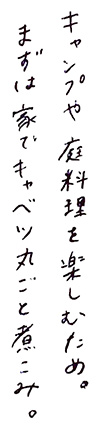 キャンプや庭料理を楽しむため。
まずは家でキャベツ丸ごと煮こみ。